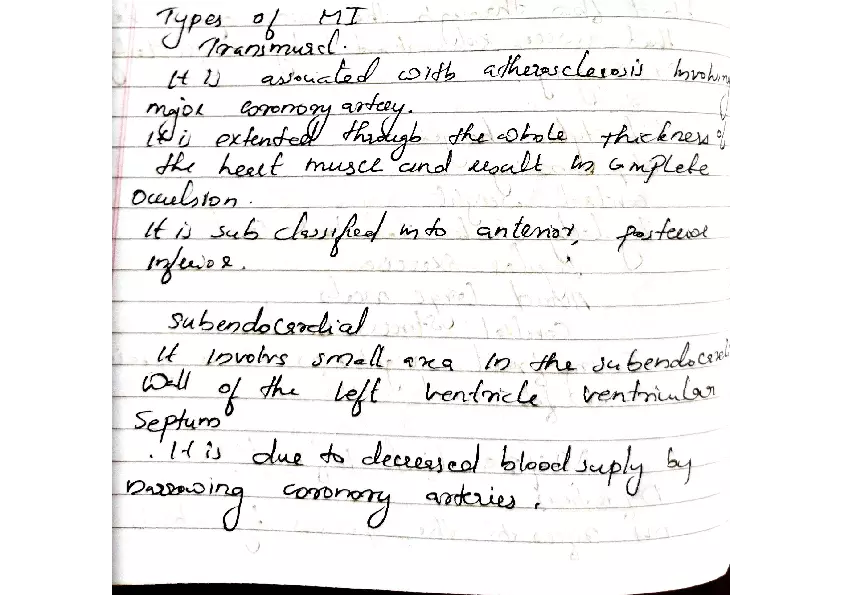 Types of MI
Transmuscl.
It is associated with atherosclerosis Involving
major coronory artey.
It is extented through the whole thickness of
the heart muscle and result in complete
Occulsion.
It is sub classified into anterior, posterior
Inferior.
Subendocardial
It Involvs small area In the subendocardi
Wall of the left ventricle ventricular
Septum
. It is due to decreased blood suply by
narrowing coronory arteries.